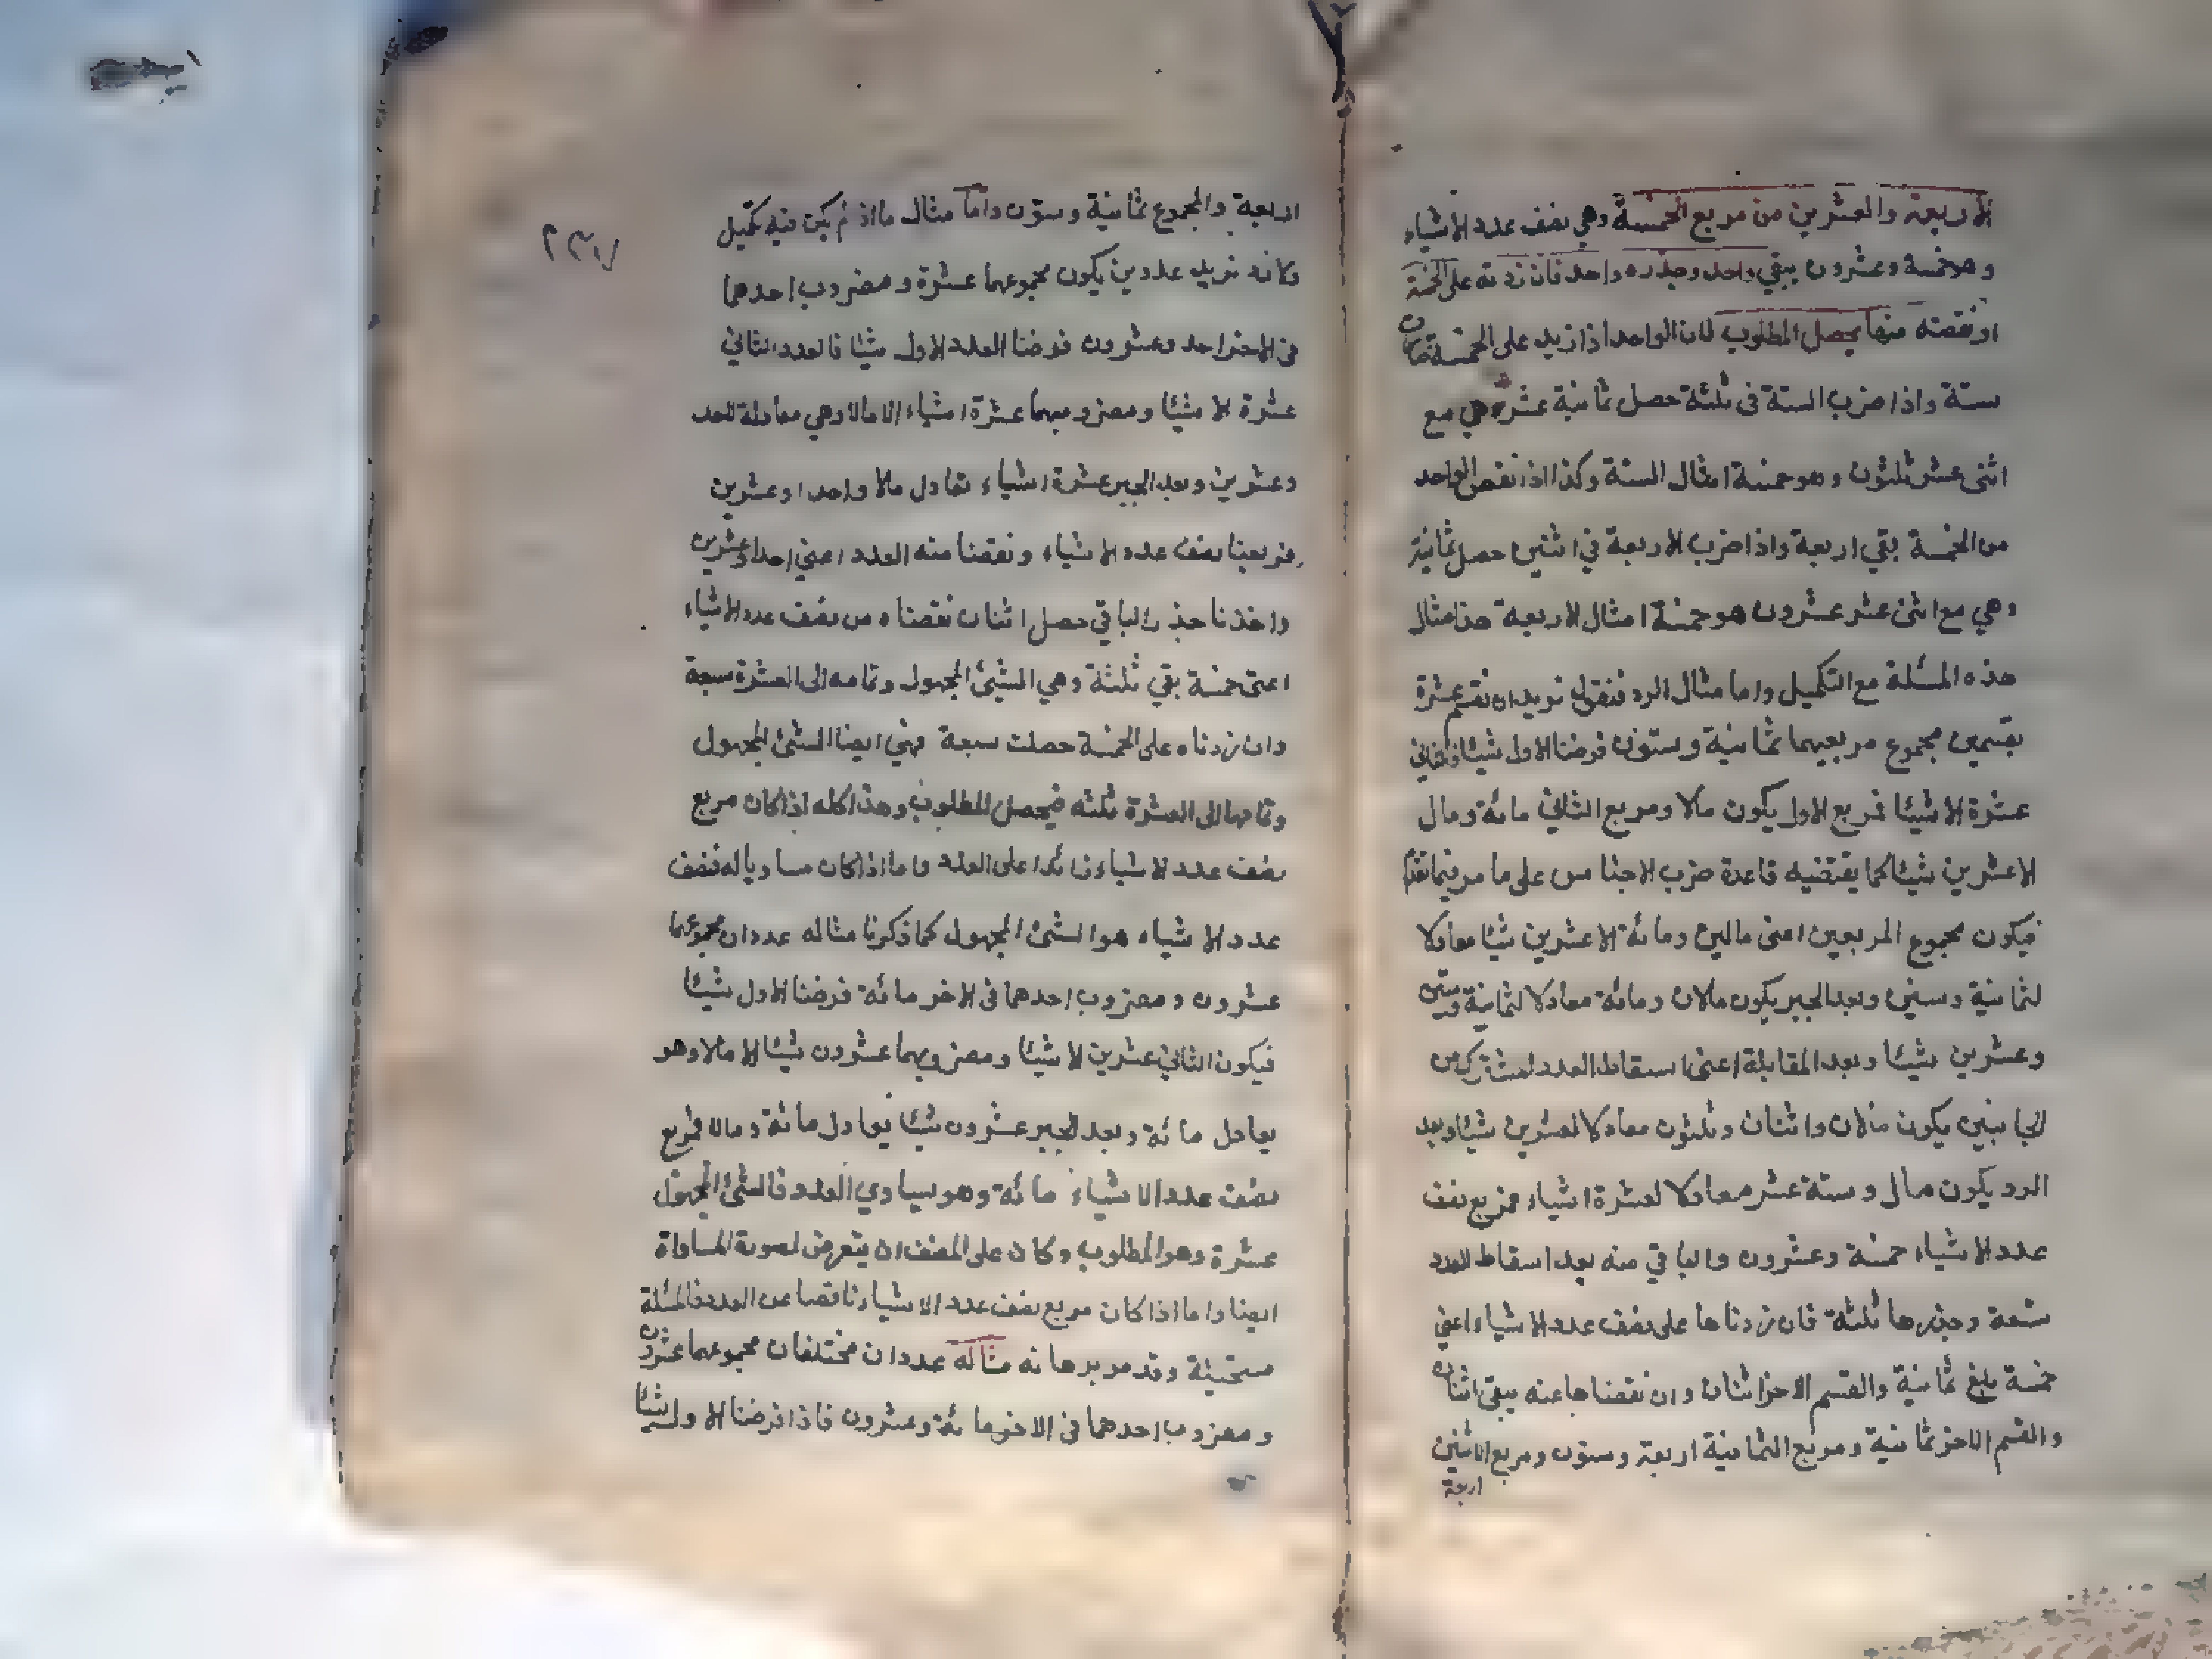 الاربعة والعشرين من مربع الخمسة وهي نصف عدد الاشياء
وهو خمسة وعشرون يبقي واحد وجذره واحد فان زدته على الخمسة
او نقصته منها يحصل المطلوب لان الواحد اذا زيد على الخمسة صارت
ستة واذا ضرب الستة فى ثلثة حصل ثمانية عشر وهي مع
اثنى عشر ثلثون وهو خمسة امثال الستة وكذا اذا نقص الواحد
من الخمسة بقي اربعة واذا ضرب الاربعة في اثنين حصل ثمانية
وهي مع اثنى عشر عشرون هو خمسة امثال الاربعة هذا مثال
هذه المسئلة مع التكميل واما مثال الرد فنقول نريد ان نقسم عشرة
بقسمين مجموع مربعيهما ثمانية وستون فرضنا الاول شيئا فالثاني
عشرة الا شيئا فمربع الاول يكون مالا ومربع الثاني مائة ومال
الا عشرين شيئا كما يقتضيه قاعدة ضرب الاجناس على ما مر فيما تقدم
فيكون مجموع المربعين اعنى مالين ومائة الا عشرين شيئا معادلا
لثمانية وستين وبعد الجبر يكون مالان ومائة معادلا لثمانية وستين
وعشرين شيئا وبعد المقابلة اعنى اسقاط العدد المشترك من
الجانبين يكون مالان واثنان وثلثون معادلا لعشرين شيئا وبعد
الرد يكون مال وستة عشر معادلا لعشرة اشياء فمربع نصف
عدد الاشياء خمسة وعشرون والباقي منه بعد اسقاط العدد
تسعة وجذرها ثلثة فان زدناها على نصف عدد الاشياء اعني
خمسة بلغ ثمانية والقسم الاخر اثنان وان نقصناها عنه يبقى اثنان
والقسم الاخر ثمانية ومربع الثمانية اربعة وستون ومربع الاثنين
اربعة
اربعة والمجموع ثمانية وستون واما مثال ما اذ لم يكن فيه تكميل
فكانه نريد عددين يكون مجموعهما عشرة ومضروب احدهما
فى الاخر احد وعشرون فرضنا العدد الاول شيئا فالعدد الثاني
عشرة الا شيئا ومضروبهما عشرة اشياء الا مالا وهي معادلة لاحد
وعشرين وبعد الجبر عشرة اشياء تعادل مالا واحدا وعشرين
فربعنا نصف عدد الاشياء ونقصنا منه العدد اعني احدا وعشرين
واخذنا جذر الباقي حصل اثنان نقصناه من نصف عدد الاشياء
اعنى خمسة بقي ثلثة وهي الشيئ المجهول وتمامه الى العشرة سبعة
وان زدناه على الخمسة حصلت سبعة فهي ايضا الشئ المجهول
وتمامها الى العشرة ثلثه فيحصل المطلوب وهذا كله اذا كان مربع
نصف عدد الاشياء زائدا على العدد واما اذا كان مساويا له فنصف
عدد الاشياء هو الشئ المجهول كما ذكرنا مثاله عددان مجموعهما
عشرون ومضروب احدهما فى الاخر مائة فرضنا الاول شيئا
فيكون الثاني عشرين الا شيئا ومضروبهما عشرون شيئا الا مالا وهو
يعادل مائة وبعد الجبر عشرون شيئا يعادل مائة ومالا فمربع
نصف عدد الاشياء مائة وهو يساوي العدد فالشئ المجهول
عشرة وهو المطلوب وكان على المصنف ان يتعرض لصورة المساواة
ايضا واما اذا كان مربع نصف عدد الاشياء ناقصا عن العدد فالمسئلة
مستحيلة وقد مر برهانه مثاله عددان مختلفان مجموعهما عشرون
ومضروب احدهما فى الاخر مائة وعشرون فاذا فرضنا الاول شيئا